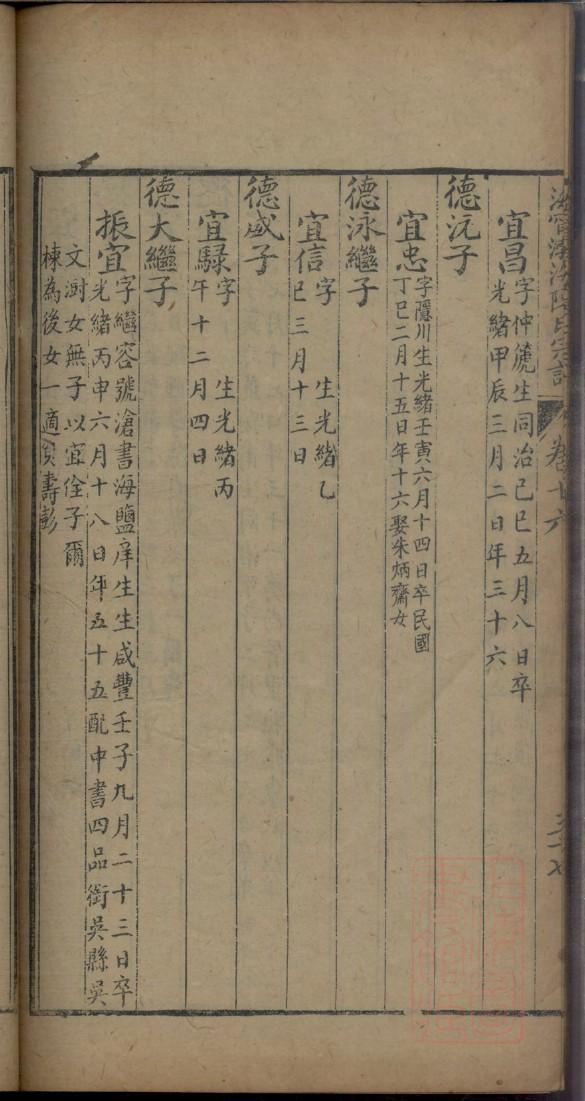 宜昌
字仲篪生同治己巳五月八日卒
光緒甲辰三月二日年三十六
德沅子
宜忠
字隱川生光緒壬寅六月十四日卒民國
丁巳二月十五日年十六娶朱炳齋女
德泳繼子
宜信
字 生光緒乙
巳三月十三日
德威子
宜騄
字 生光緒丙
午十二月四日
德大繼子
振宜
字繼容號滄書海鹽庠生生咸豐壬子九月二十三日卒
光緒丙申六月十八日年五十五配中書四品銜吳縣吳
文澍女無子以宜佺子爾
棟為後女一適吳壽彭
卷十六